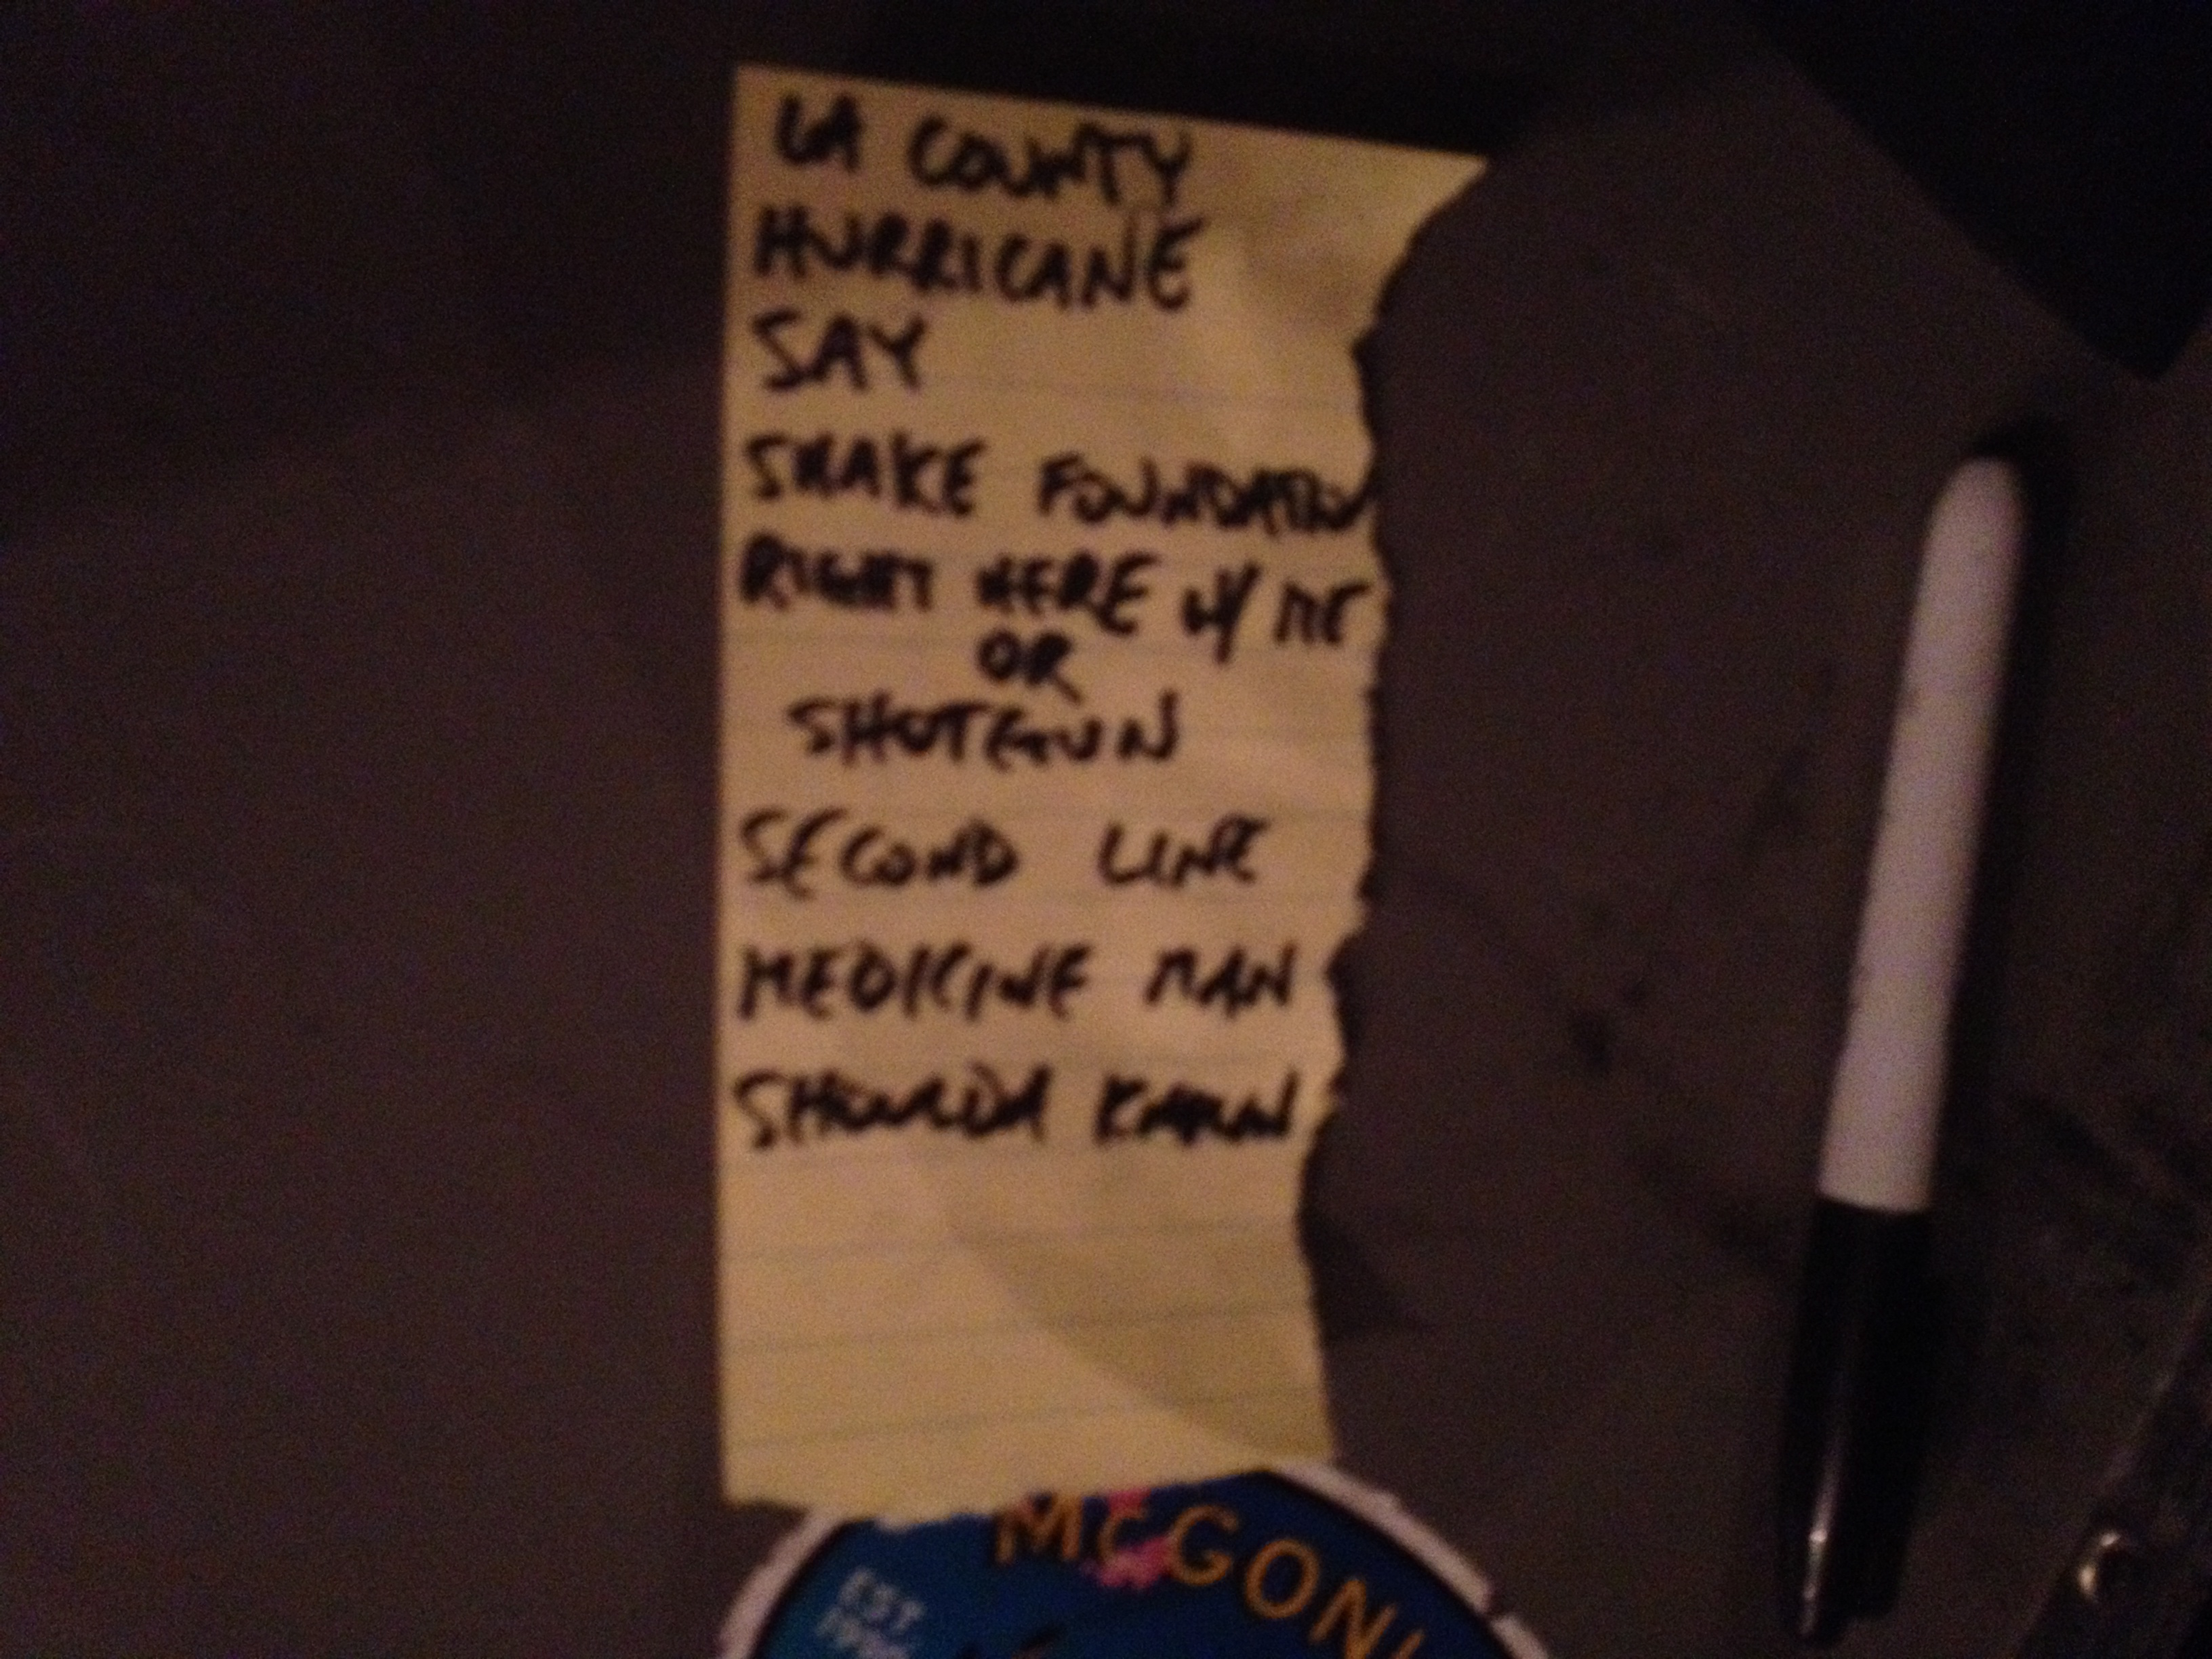 LA COUNTY
HURRICANE
SAY
SHAKE FOUNDATION
RIGHT HERE W/ ME
OR
SHOTGUN
SECOND LINE
MEDICINE MAN
SHOULDA
MCGON
EST